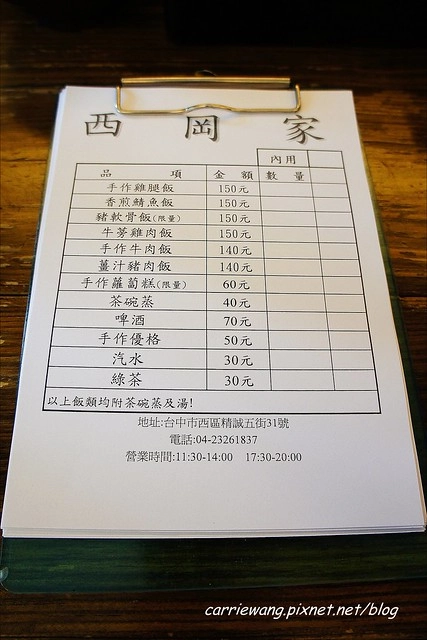 西岡家
內用
品項 金額 數量
手作雞腿飯 150元
香煎鯖魚飯 150元
豬軟骨飯(限量) 150元
牛蒡雞肉飯 150元
手作牛肉飯 140元
薑汁豬肉飯 140元
手作蘿蔔糕(限量) 60元
茶碗蒸 40元
啤酒 70元
手作優格 50元
汽水 30元
綠茶 30元
以上飯類均附茶碗蒸及湯!
地址:台中市西區精誠五街31號
電話:04-23261837
營業時間:11:30-14:00 17:30-20:00
carriewang.pixnet.net/blog